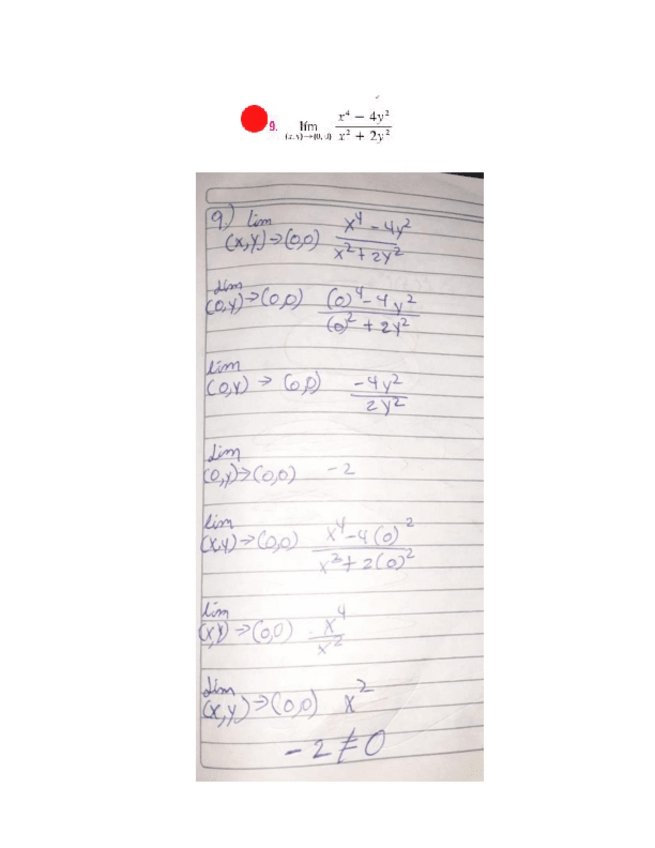 9. lím (x, y)→(0, 0) x⁴ − 4y² / x² + 2y²
9.) lim (x,y)→(0,0) x⁴ − 4y² / x² + 2y²
lim (0,y)→(0,0) (0)⁴ − 4y² / (0)² + 2y²
lim (0,y) → (0,0) −4y² / 2y²
lim (0,y)→(0,0) −2
lim (x,y)→(0,0) x⁴ − 4(0)² / x² + 2(0)²
lim (x,y)→(0,0) x⁴ / x²
lim (x,y)→(0,0) x²
−2 ≠ 0